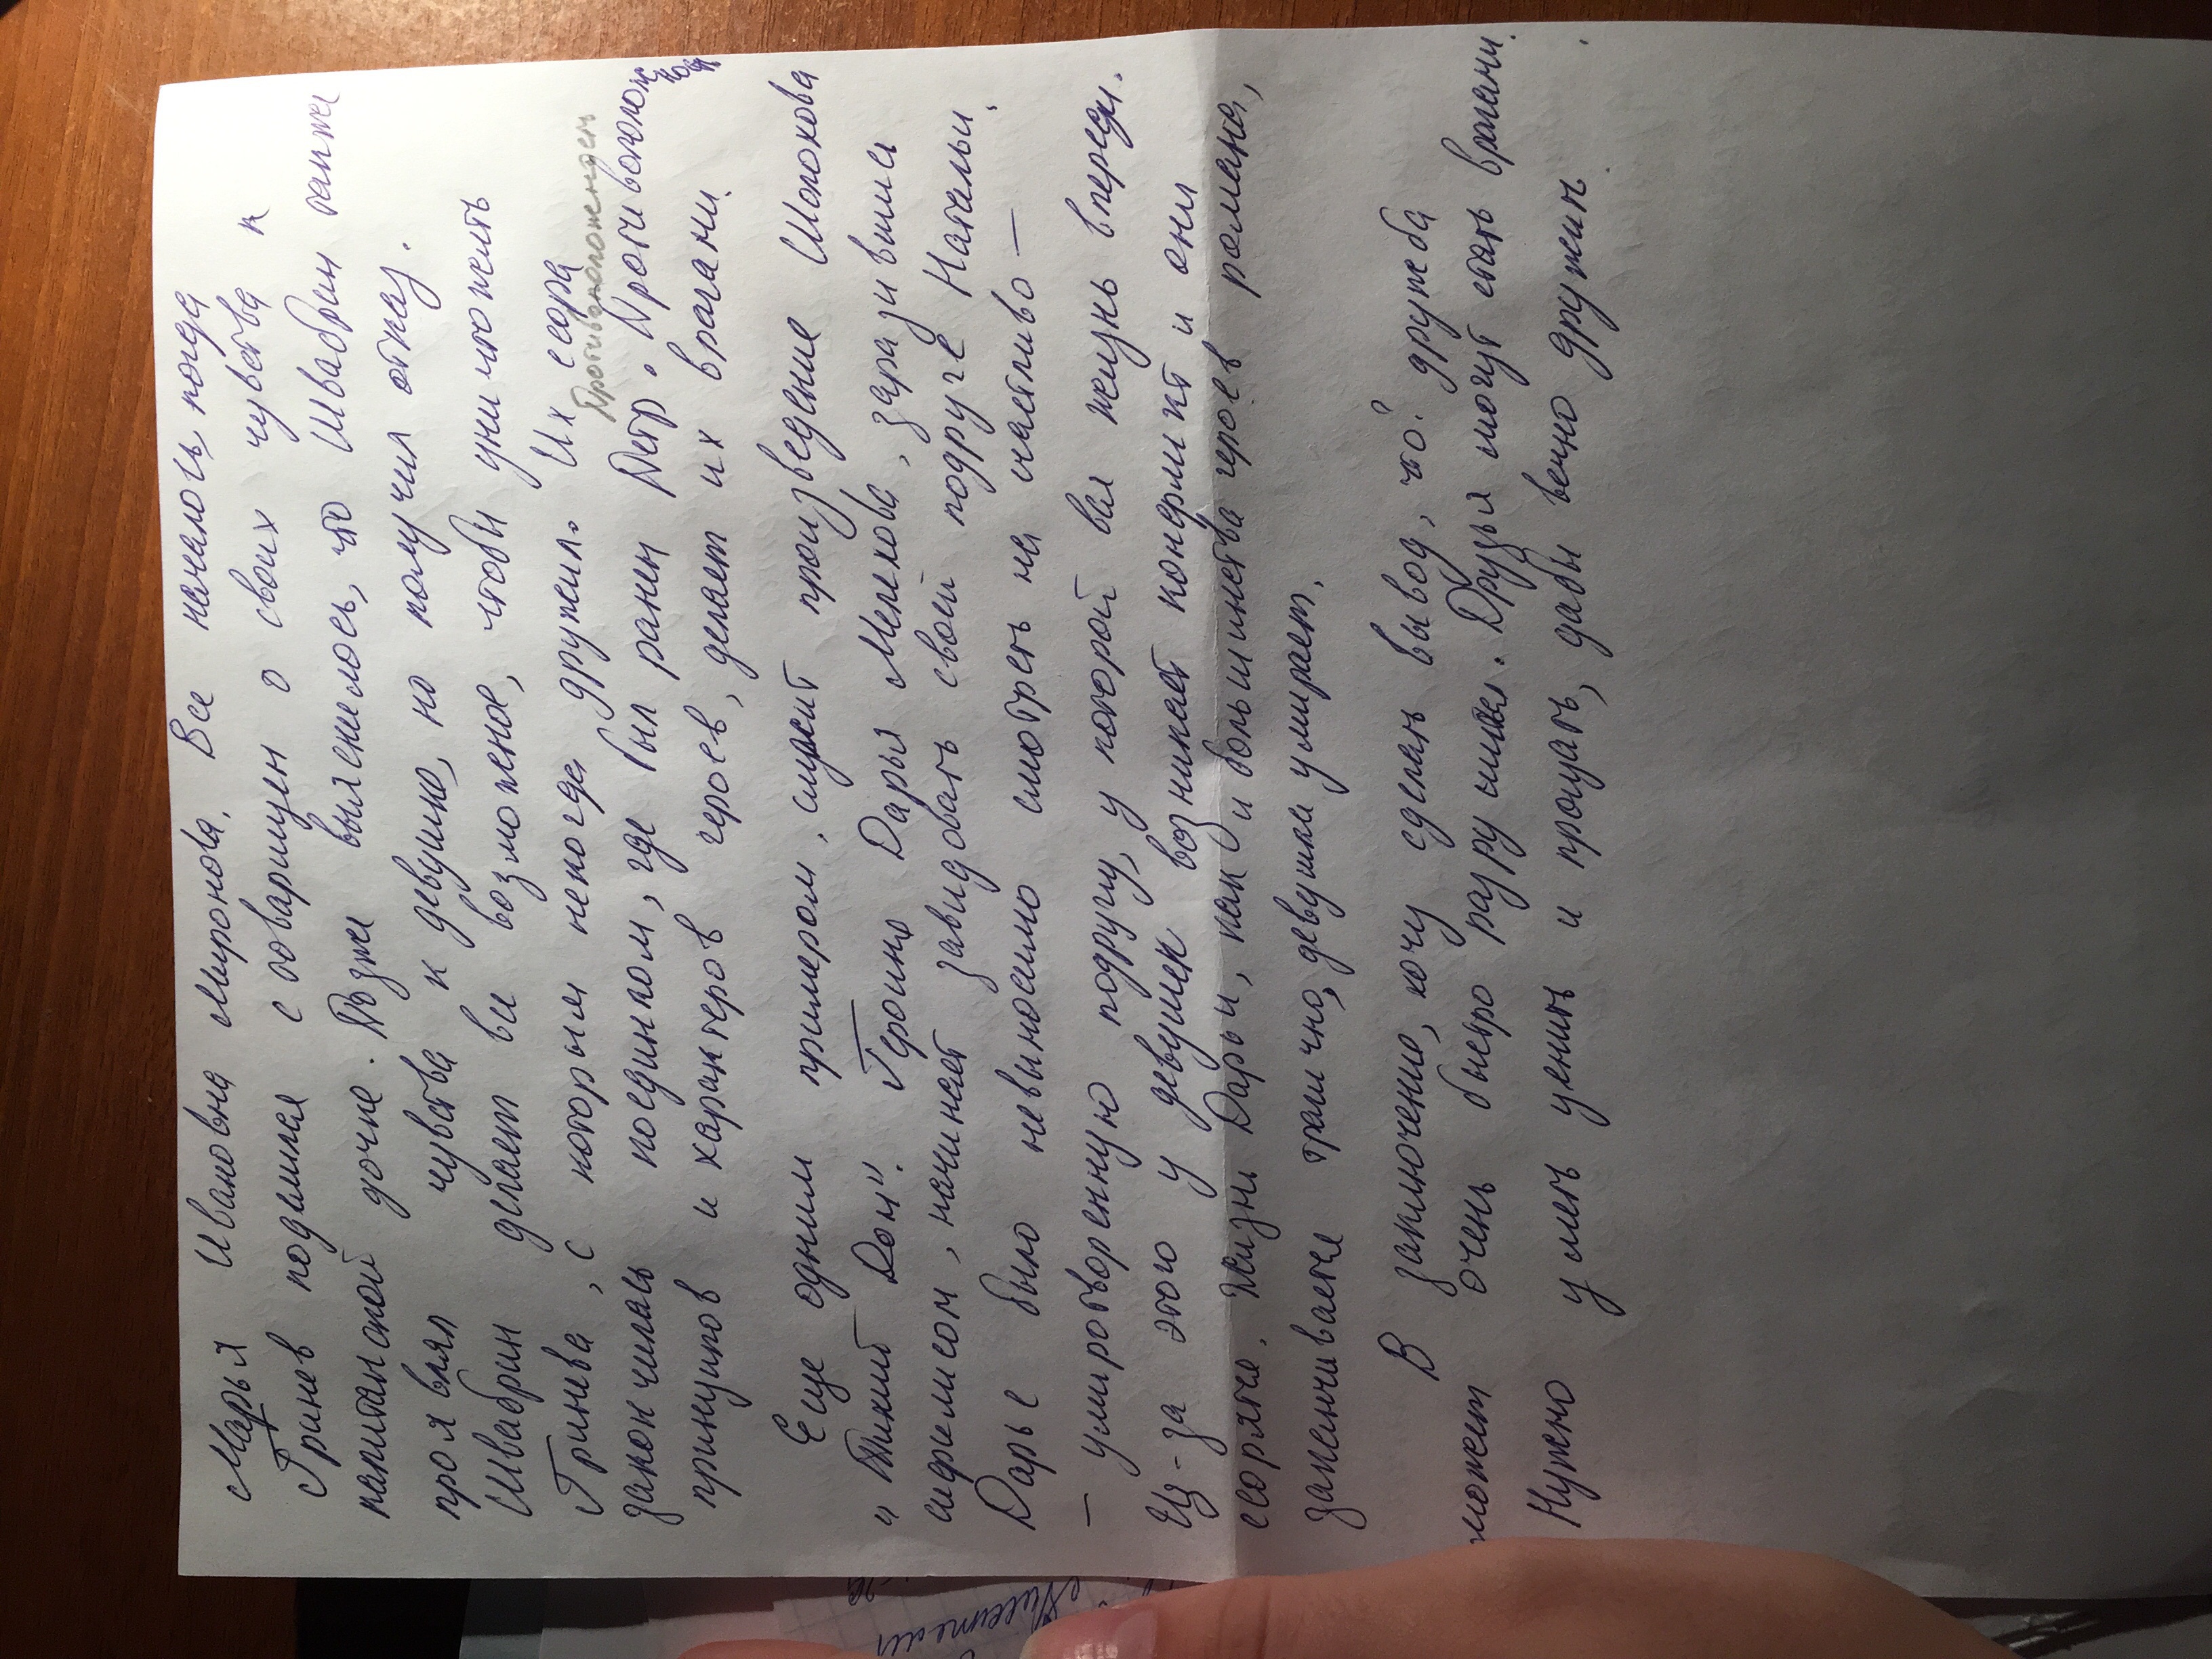 Марья Ивановна Миронова. Все началось, когда
Гринев поделился с товарищем о своих чувствах к
капитанской дочке. Позже выяснилось, что Швабрин также
проявлял чувства к девушке, но получил отказ.
Швабрин делает все возможное, чтобы уничтожить
Гринева, с которым некогда дружил. Их ссора
Противоположенден
закончилась поединком, где был ранен Петр. Противополож
принципов и характеров героев, делает их врагами.
Еще одним примером, служит произведение Шолохова
"Тихий Дон". Героиня Дарья Мелехова, заразившися
сифилисом, начинает завидовать своей подруге Натальи.
Дарье было невыносимо смотреть на счастливо-
-умиротворенную подругу, у которой вся жизнь впереди.
Из-за этого у девушек возникает конфликт и они
ссорятся. Жизнь Дарьи, как и большинства героев романа,
заканчивается трагично, девушка умирает.
В заключение, хочу сделать вывод, что: дружба
может очень быстро разрушиться. Друзья могут стать врагами.
Нужно уметь ценить и прощать, дабы вечно дружить.